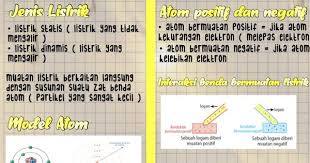 Jenis Listrik
• listrik statis ( listrik yang tidak
mengalir )
• listrik dinamis ( listrik yang
mengalir )
muatan listrik berkaitan langsung
dengan susunan suatu zat benda
atom ( partikel yang sangat kecil )
Model Atom
Atom positif dan negatif
• atom bermuatan positif = jika atom
kekurangan elektron ( melepas elektron )
• atom bermuatan negatif = jika atom
kelebihan elektron
Interaksi Benda Bermuatan listrik
logam
logam
Sebuah logam diberi
muatan positif
Sebuah logam diberi
muatan negatif